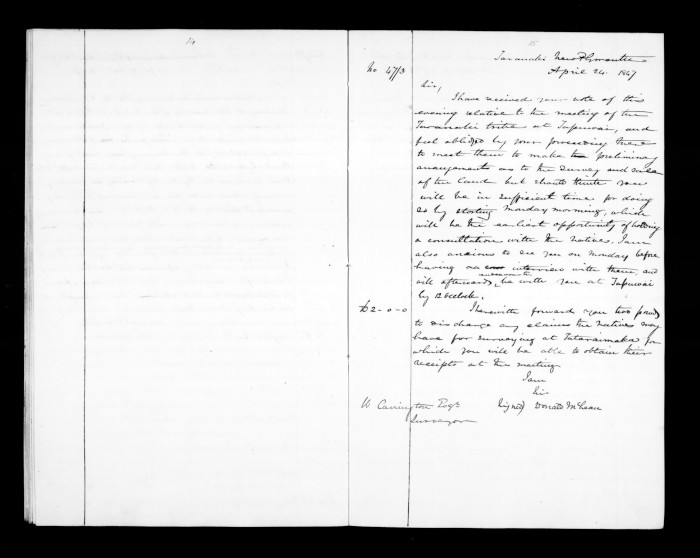 14
15
No 47/3
Taranaki New Plymouth
April 24. 1847
Sir,
I have received your note of this
evening relative to the meeting of the
Taranaki tribe at Tapuwai, and
feel obliged by your proceeding there
to meet them to make the preliminary
arrangements as to the survey and sale
of the land but should think you
will be in sufficient time for doing
so by starting Monday morning, which
will be the earliest opportunity of holding
a consultation with the Natives. I am
also anxious to see you on Monday before
having an interview with them, and
will afterwards, be with you at Tapuwai
by 12 Oclock.
£2-0-0
I herewith forward you two pounds
to discharge any claims the Natives may
have for surveying at Tataraimaka for
which you will be able to obtain their
receipts at the meeting
I am
Sir
Signed) Donald McLean
W Carrington Esqre
Surveyor